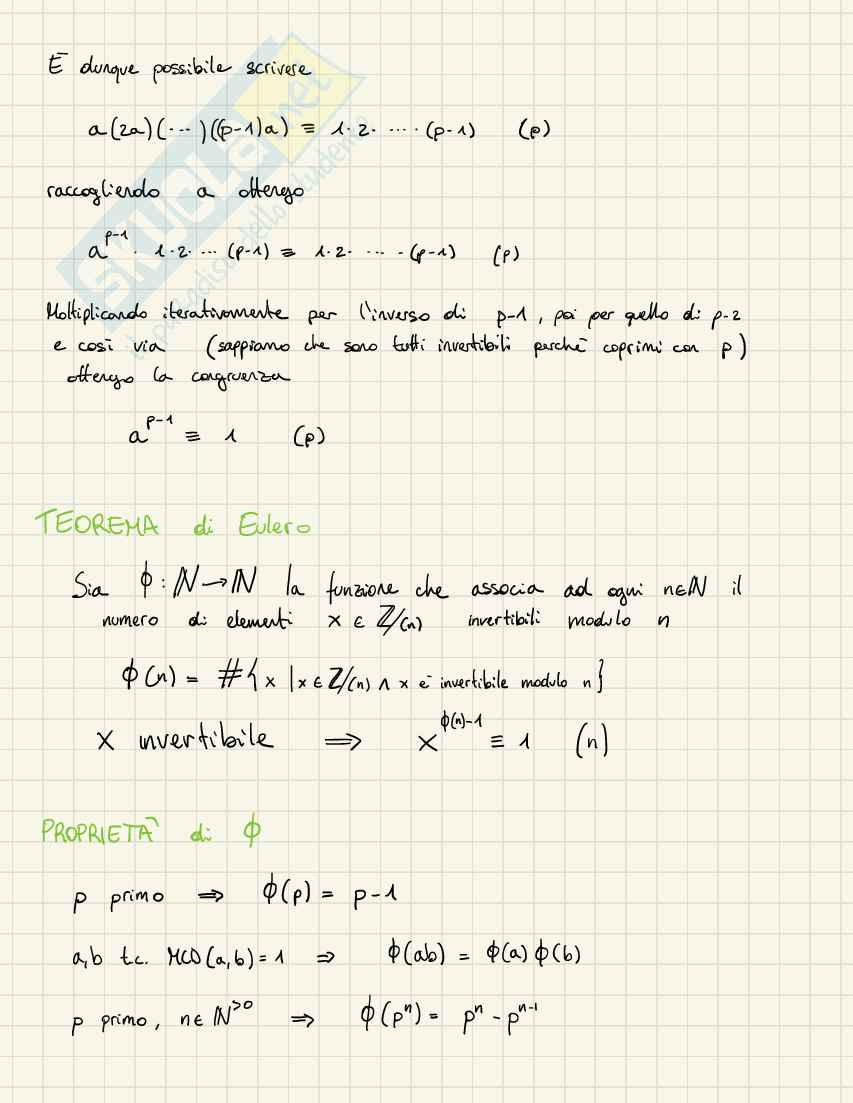 È dunque possibile scrivere
a(2a)(···)((p-1)a) ≡ 1·2· ··· ·(p-1) (p)
raccogliendo a ottengo
a^{p-1} · 1·2· ··· (p-1) ≡ 1·2· ··· ·(p-1) (p)
Moltiplicando iterativamente per l'inverso di p-1, poi per quello di p-2
e così via (sappiamo che sono tutti invertibili perchè coprimi con p)
ottengo la congruenza
a^{p-1} ≡ 1 (p)
TEOREMA di Eulero
Sia ϕ: ℕ→ℕ la funzione che associa ad ogni n∈ℕ il
numero di elementi x ∈ ℤ/(n) invertibili modulo n
ϕ(n) = #{x | x ∈ ℤ/(n) ∧ x è invertibile modulo n}
X invertibile ⟹ x^{ϕ(n)-1} ≡ 1 (n)
PROPRIETÀ di ϕ
p primo ⟹ ϕ(p) = p-1
a,b t.c. MCD(a,b)=1 ⟹ ϕ(ab) = ϕ(a)ϕ(b)
p primo, n∈ℕ^{>0} ⟹ ϕ(p^n) = p^n - p^{n-1}
SKUOLA.net
il paradiso dello studente